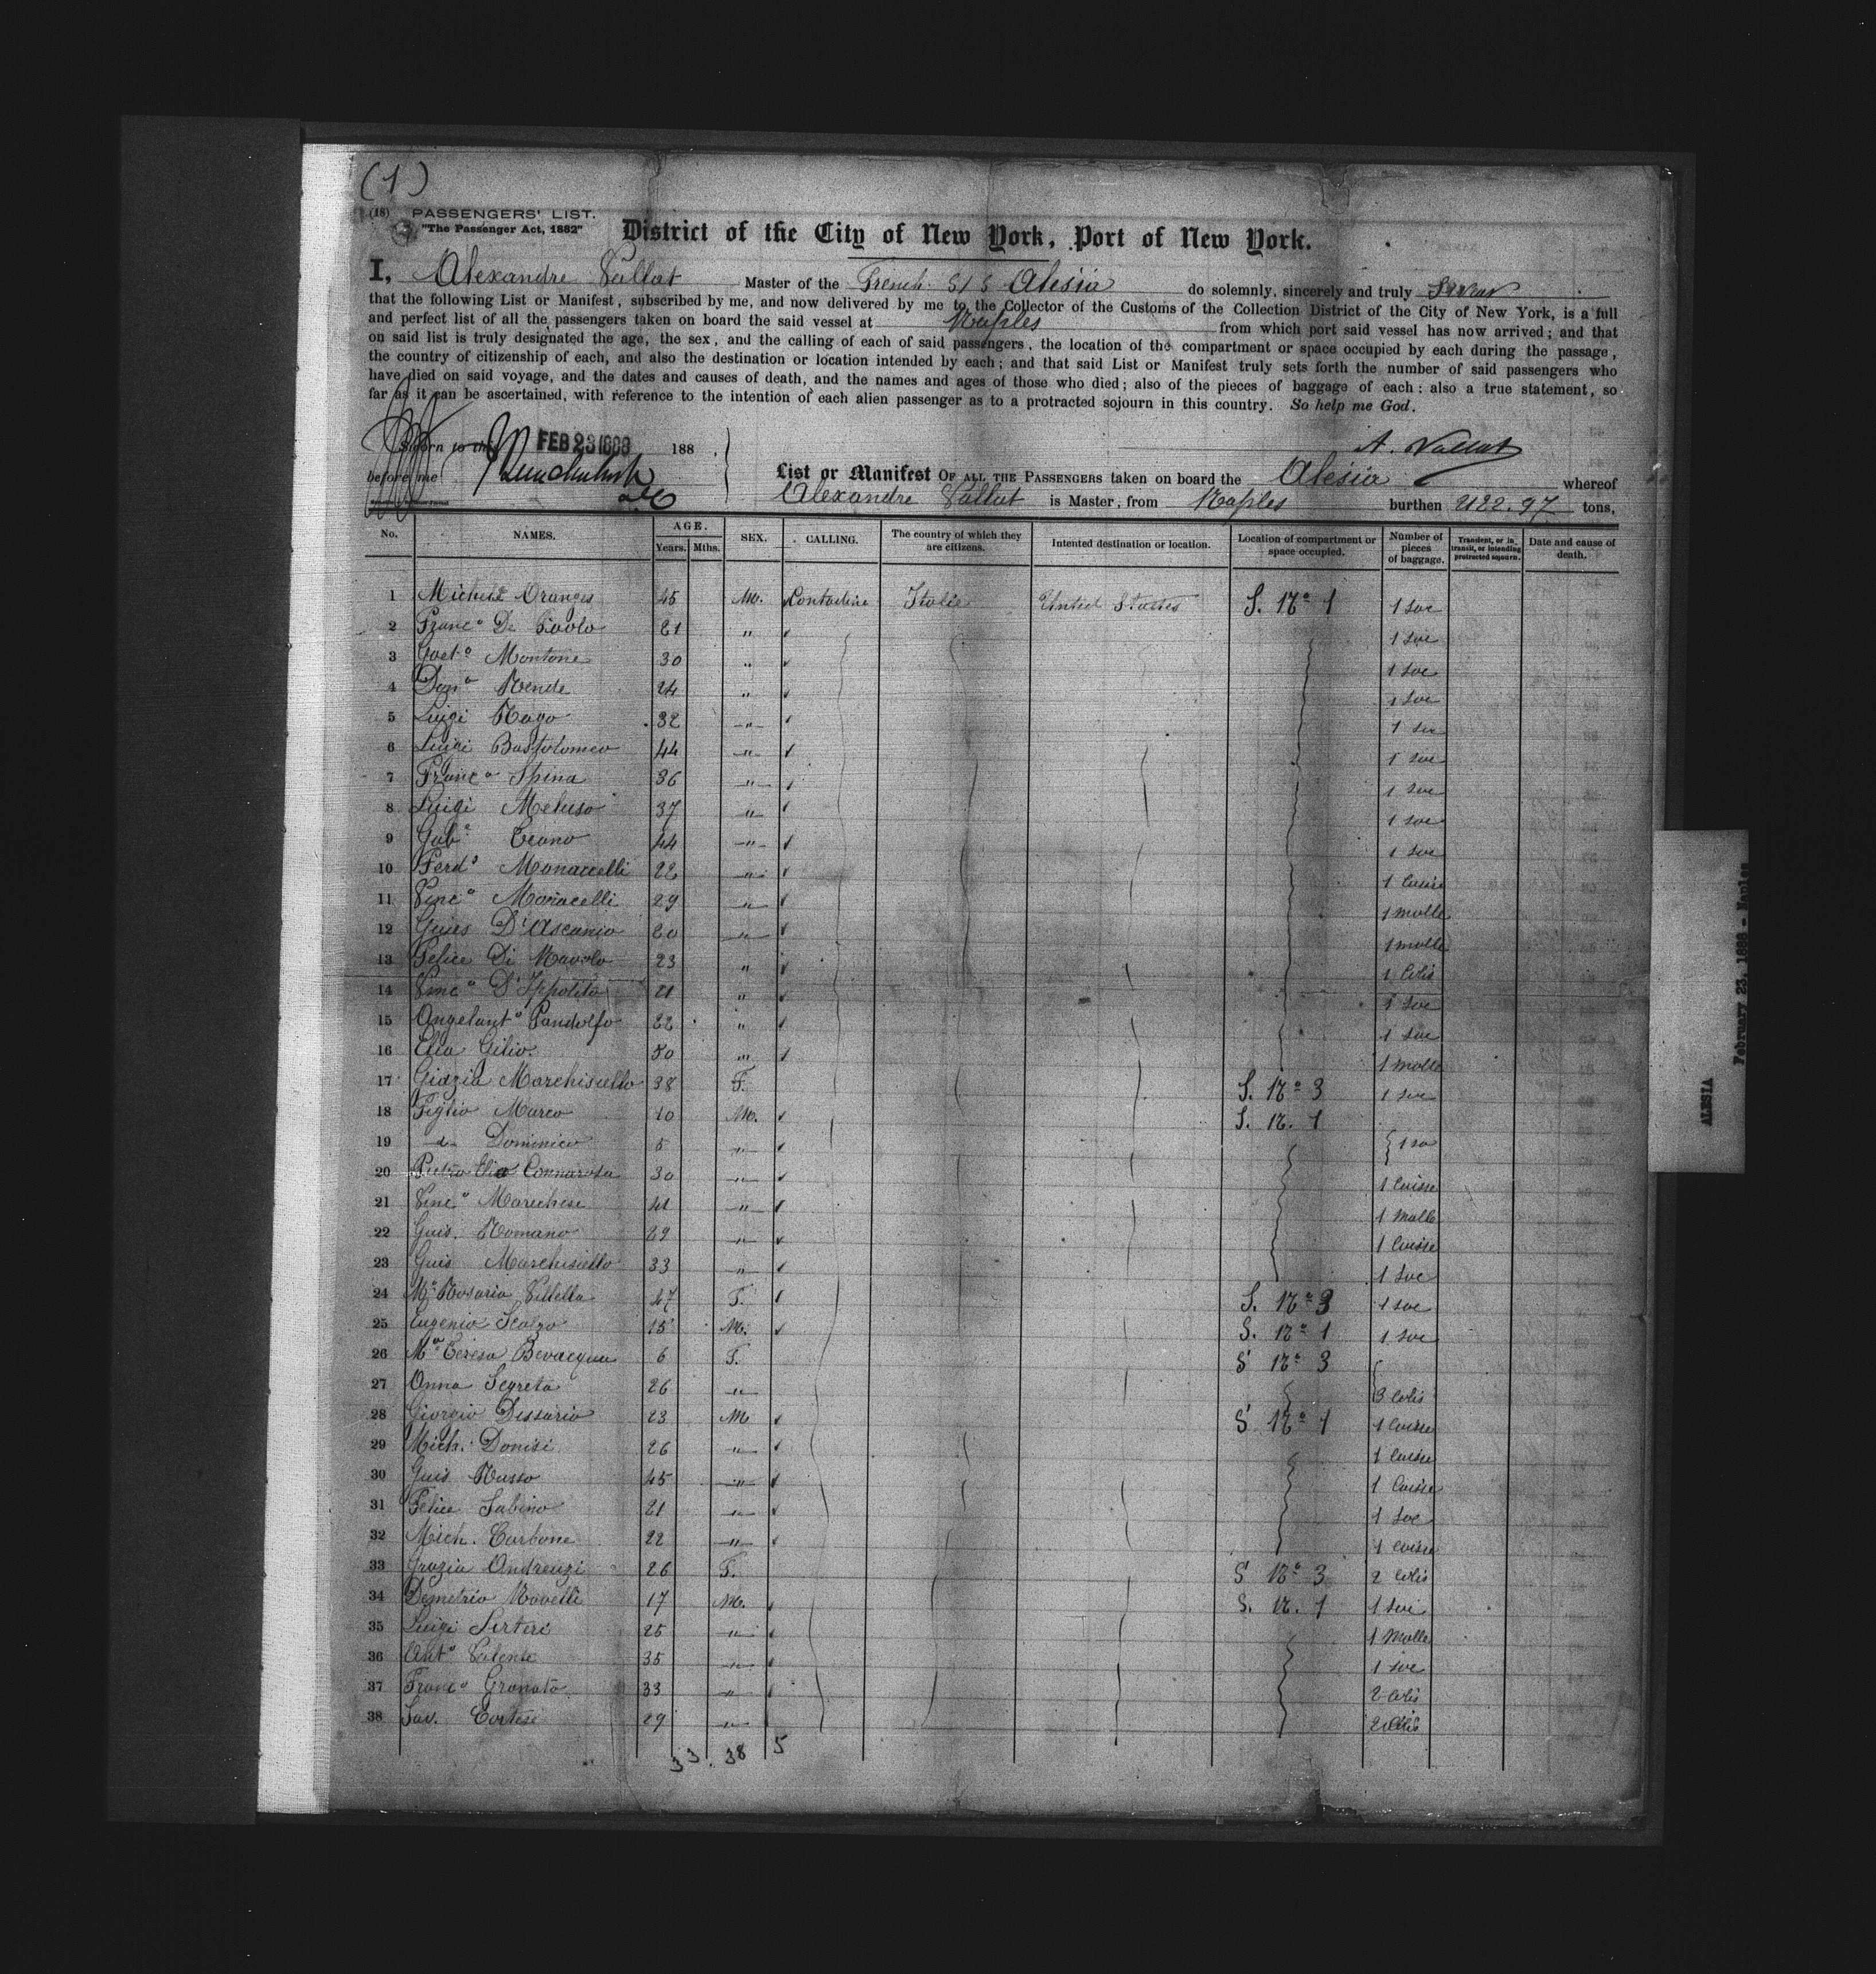 (1)
(18) PASSENGERS' LIST.
"The Passenger Act, 1882"
District of the City of New York, Port of New York.
I, Alexandre Vallat Master of the French S/S Alesia do solemnly, sincerely and truly Swear
that the following List or Manifest, subscribed by me, and now delivered by me to the Collector of the Customs of the Collection District of the City of New York, is a full
and perfect list of all the passengers taken on board the said vessel at Naples from which port said vessel has now arrived; and that
on said list is truly designated the age, the sex, and the calling of each of said passengers, the location of the compartment or space occupied by each during the passage,
the country of citizenship of each, and also the destination or location intended by each; and that said List or Manifest truly sets forth the number of said passengers who
have died on said voyage, and the dates and causes of death, and the names and ages of those who died; also of the pieces of baggage of each: also a true statement, so
far as it can be ascertained, with reference to the intention of each alien passenger as to a protracted sojourn in this country. So help me God.
Sworn to this FEB 23 1888 188
A. Vallat
before me
List or Manifest OF ALL THE PASSENGERS taken on board the Alesia whereof
Alexandre Vallat is Master, from Naples burthen tons,
No. NAMES. AGE. Years. Mths. SEX. CALLING. The country of which they are citizens. Intented destination or location. Location of compartment or space occupied. Number of pieces of baggage. Transient, or in transit, or intending protracted sojourn. Date and cause of death.
1 Michele Oranges 45 M. Contadino Italie United States S. No 1 1 sac
2 Franco De Paolo 21 " 1 sac
3 Gaeto Montone 30 " 1 sac
4 Domo Rende 24 " 1 sac
5 Luigi Nago 32 " 1 sac
6 Luigi Bartolomeo 44 " 1 sac
7 Franco Spina 36 " 1 sac
8 Luigi Meluso 37 " 1 sac
9 Gabo 44 " 1 sac
10 Ferdo Monaccelli 22 " 1 caisse
11 Vinco Monacelli 29 " 1 malle
12 Guis D'Ascanio 20 " 1 malle
13 Felice Di 23 " 1 colis
14 Vinco D'Ippolito 21 " 1 sac
15 Angelanto Pandolfo 22 " 1 sac
16 Elia Gilio. 50 " 1 malle
17 Grazia Marchisiello 38 F. S. No 3 1 sac
18 Figlio Marco 10 M. S. N. 1
19 d Domenico 5 " 1 sac
20 Pietro Elia Connarosa 30 " 1 caisse
21 Vinco Marechese 41 " 1 Malle
22 Guis. Romano 29 " 1 caisse
23 Guis Marchisiello 33 " 1 sac
24 Ma Rosaria Villella 47 F. S. No 3 1 sac
25 Eugenio Scalzo 15 M. S. No 1 1 sac
26 Ma Teresa Bevacqua 6 F. S No 3
27 Anna Segreto 26 " 3 colis
28 Giorgio Dessario 23 M S No 1 1 caisse
29 Mich. Donisi 26 " 1 caisse
30 Guis Russo 45 " 1 caisse
31 Felice Sabino 21 " 1 sac
32 Mich. Carbone 22 " 1 caisse
33 Grazia Andreuzi 26 F. S No 3 2 colis
34 Demetrio Novelli 17 M. S. N. 1 1 sac
35 Luigi 25 " 1 Malle
36 Anto Valente 35 " 1 sac
37 Franco Granato 33 " 2 colis
38 Sav. Cortese 29 " 2 colis
33. 38 5
ALESIA
February 23, 1888 - Naples